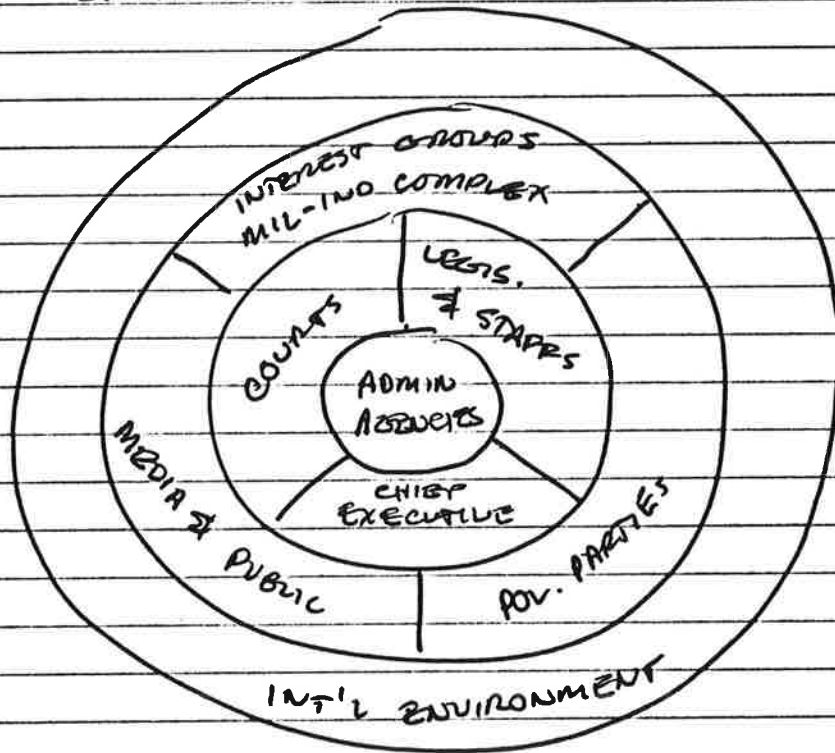 INTEREST GROUPS
MIL-IND COMPLEX
LEGIS.
& STAFFS
COURTS
ADMIN
AGENCIES
CHIEF
EXECUTIVE
MEDIA &
PUBLIC
POL. PARTIES
INT'L ENVIRONMENT